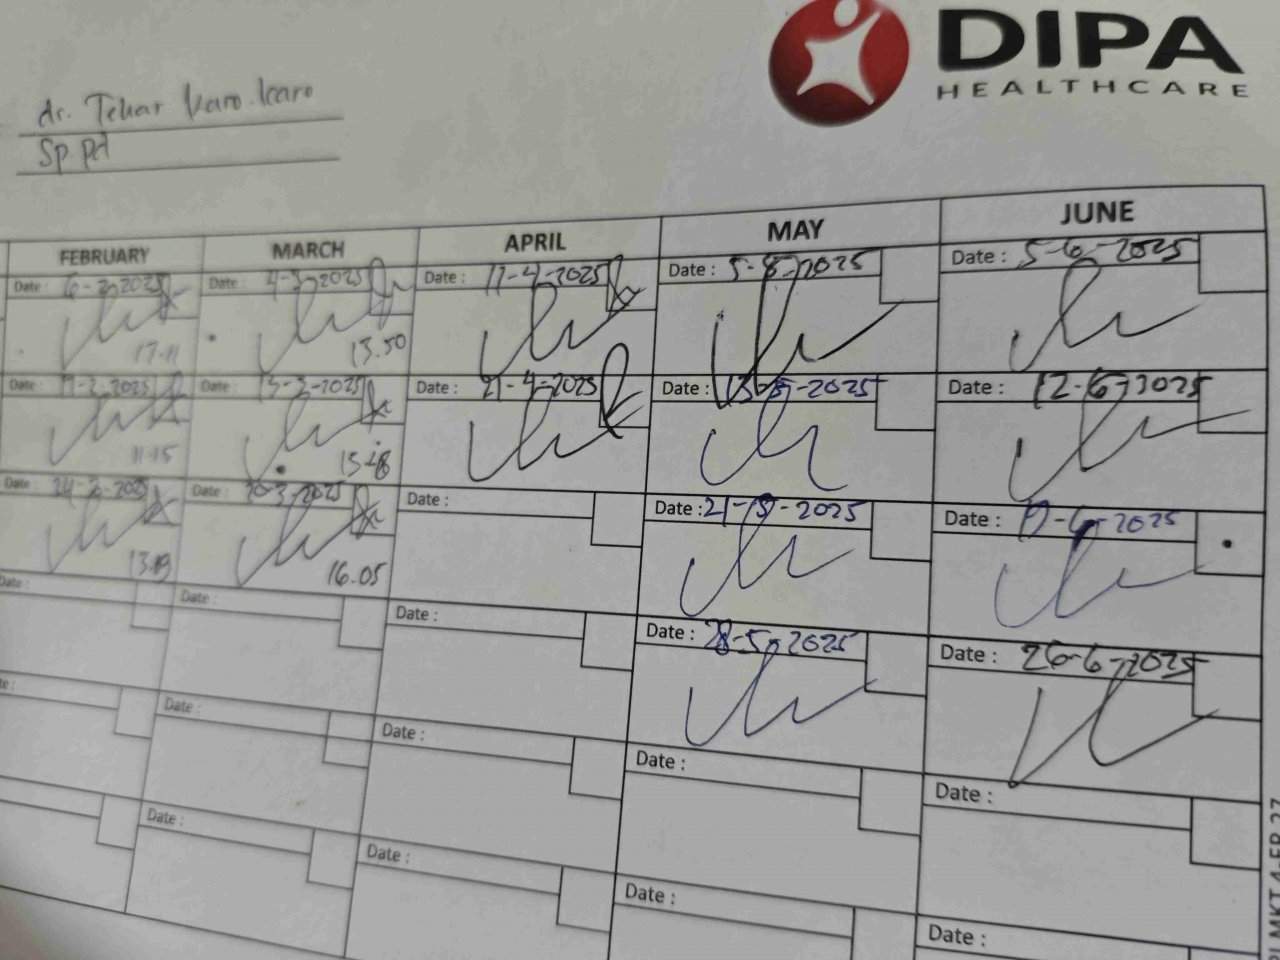 DIPA
HEALTHCARE
dr. Tehar Karo-karo
Sp.pd
FEBRUARY MARCH APRIL MAY JUNE
Date : 6-2-2025 Date : 4-3-2025 Date : 11-4-2025 Date : 5-8-2025 Date : 5-6-2025
17.11 13.50
Date : Date : 13-3-2025 Date : 21-4-2025 Date : 13-5-2025 Date : 12-6-2025
11.15 15.48
Date : 24-2-2025 Date : 20-3-2025 Date : Date : 21-5-2025 Date : 19-6-2025
13.19 16.05
Date : Date : Date : Date : 28-5-2025 Date : 26-6-2025
Date : Date : Date : Date :
Date : Date : Date : Date :